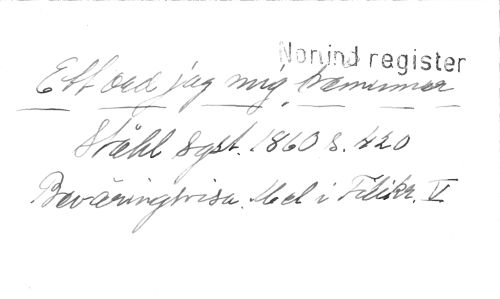 Norlind register
Ett ord jag mig framnner
Ståhl Sgst. 1860 s. 420
Beväringsvisa. Mel i Filikr. V